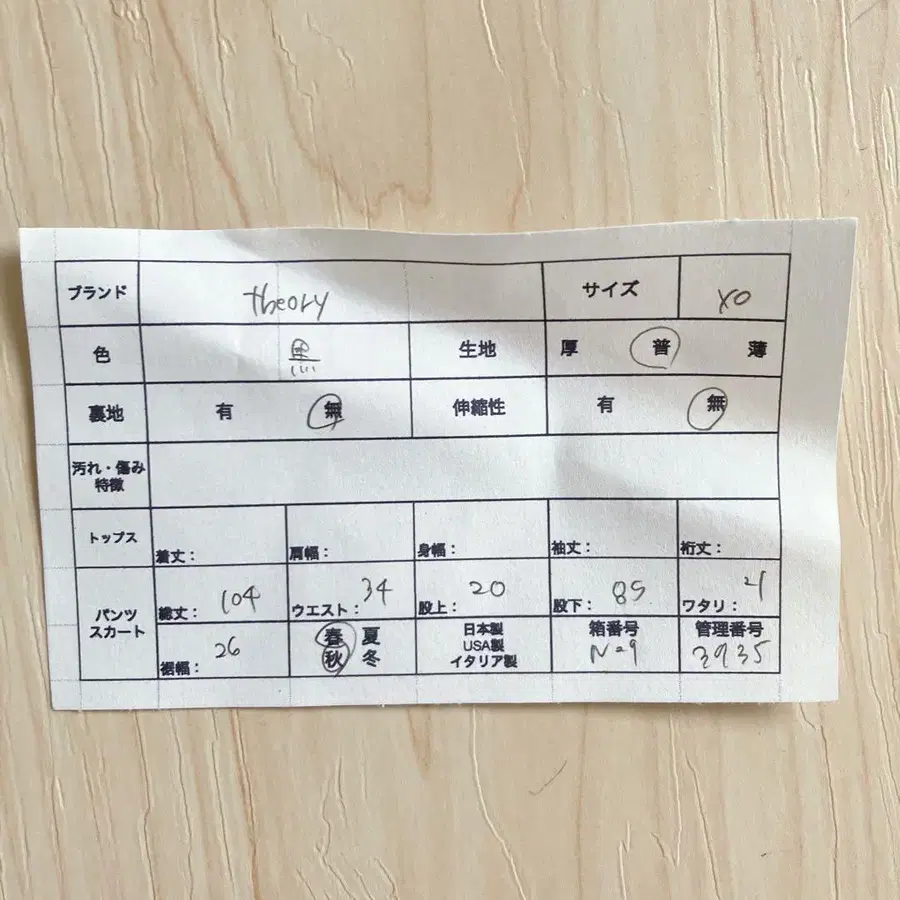 ブランド theory サイズ XO
色 黒 生地 厚 普 薄
裏地 有 無 伸縮性 有 無
汚れ・傷み
特徴
トップス 着丈: 肩幅: 身幅: 袖丈: 裄丈:
パンツ
スカート
総丈: 104 ウエスト: 34 股上: 20 股下: 85 ワタリ:
裾幅: 26
春 夏
秋 冬
日本製
USA製
イタリア製
箱番号
管理番号